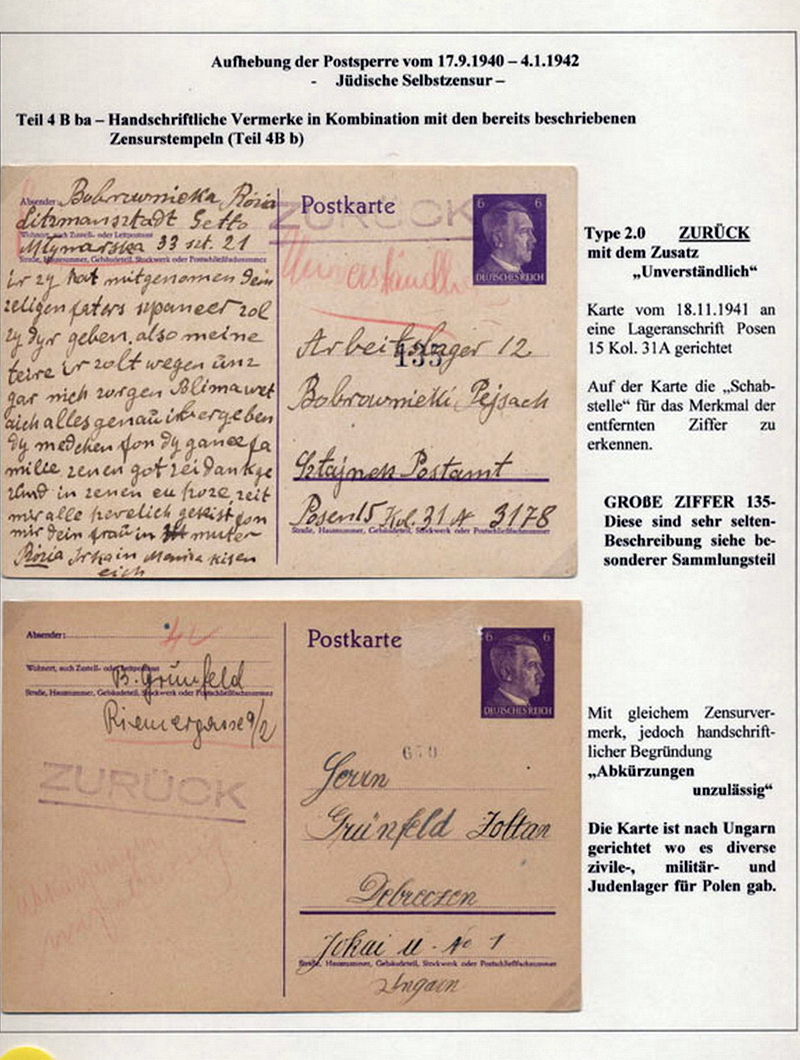 Aufhebung der Postsperre vom 17.9.1940 – 4.1.1942
- Jüdische Selbstzensur –
Teil 4 B ba – Handschriftliche Vermerke in Kombination mit den bereits beschriebenen
Zensurstempeln (Teil 4B b)
Absender: Bobrownicka Rózia
Litzmansztadt Getto
Wohnort, auch Zustell- oder Leitpostamt
Mlynarska 33 szt. 21
Straße, Hausnummer, Gebäudeteil, Stockwerk oder Postschließfachnummer
ir zy hat mitgenomen dein
zeligen faters
zy dyr geben. also meine
teire ir zolt wegen unz
gar nich zorgen Blima wet
aich alles genau ibergeben
dy medchen fon dy gance fa
milie zenen got zei dank ge
zund in zenen eu hoze zeit
mir alle herclich gekist fon
mir dein frau in muter
Rózia Irka in Moniza kisen
eich
Postkarte
ZURÜCK
6 6
DEUTSCHES REICH
Unverständlich
Arbeitslager 12
135
Bobrownicki Pejsach
Sztajnek Postamt
Posen 15 Kol. 31 A 3178
Straße, Hausnummer, Gebäudeteil, Stockwerk oder Postschließfachnummer
Type 2.0 ZURÜCK
mit dem Zusatz
„Unverständlich“
Karte vom 18.11.1941 an
eine Lageranschrift Posen
15 Kol. 31A gerichtet
Auf der Karte die „Schab-
stelle“ für das Merkmal der
entfernten Ziffer zu
erkennen.
GROßE ZIFFER 135-
Diese sind sehr selten-
Beschreibung siehe be-
sonderer Sammlungsteil
Absender:
Wohnort, auch Zustell- oder Leitpostamt
B. Grünfeld
Straße, Hausnummer, Gebäudeteil, Stockwerk oder Postschließfachnummer
Riemergasse 9/2
ZURÜCK
Postkarte
6 6
DEUTSCHES REICH
670
Herrn
Grünfeld Zoltan
Debreczen
Jokai u. No 1
Straße, Hausnummer, Gebäudeteil, Stockwerk oder Postschließfachnummer
Ungarn
Mit gleichem Zensurver-
merk, jedoch handschrift-
licher Begründung
„Abkürzungen
unzulässig“
Die Karte ist nach Ungarn
gerichtet wo es diverse
zivile-, militär- und
Judenlager für Polen gab.